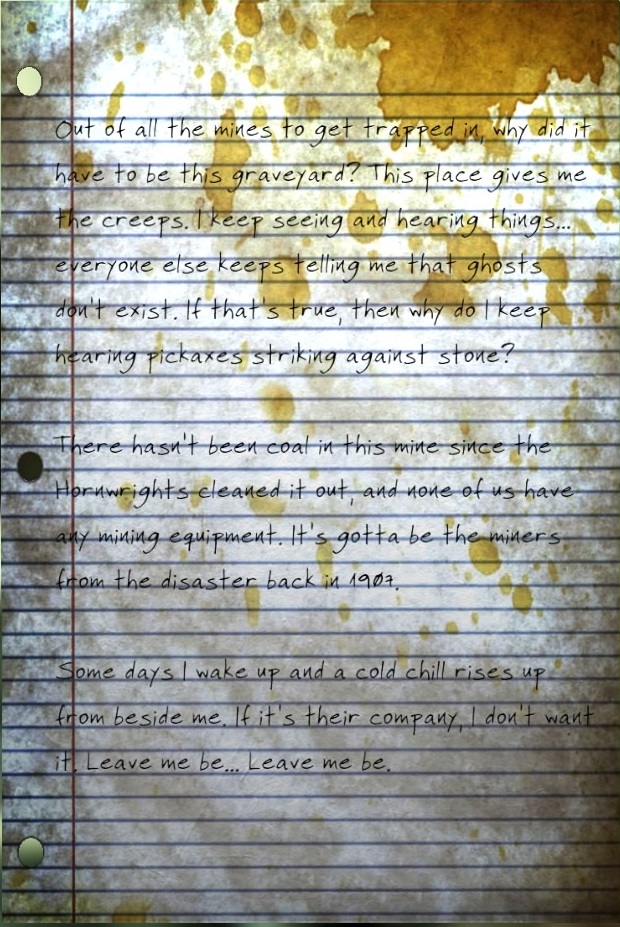 Out of all the mines to get trapped in, why did it
have to be this graveyard? This place gives me
the creeps. I keep seeing and hearing things...
everyone else keeps telling me that ghosts
don't exist. If that's true, then why do I keep
hearing pickaxes striking against stone?
There hasn't been coal in this mine since the
Hornwrights cleaned it out, and none of us have
any mining equipment. It's gotta be the miners
from the disaster back in 1907.
Some days I wake up and a cold chill rises up
from beside me. If it's their company, I don't want
it. Leave me be... Leave me be.